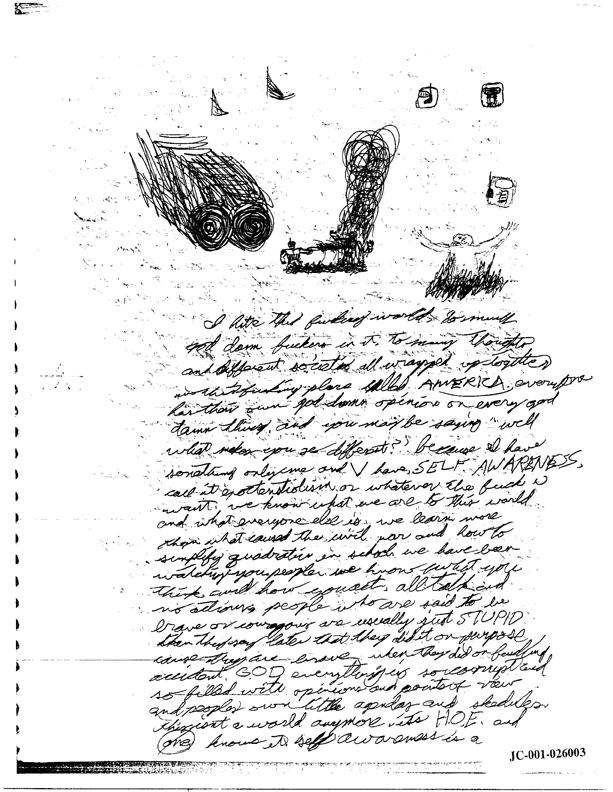 I hate this fucking world, to much
god damn fuckers in it. to many thoughts
and different societies all wrapped up together
in this fucking place called AMERICA. everyone
has their own god damn opinions on every god
damn thing, and you may be saying "well
what makes you so different?" because I have
something only me and V have, SELF AWARENESS,
call it or whatever the fuck u
want. we know what we are to this world
and what everyone else is. we learn more
than what caused the civil war and how to
simplify quadratics in school. we have been
watching you people. we know what you
think and how you act, all talk and
no actions. people who are said to be
brave or couragous are usually just STUPID.
then they say later that they did it on purpose
cause they are brave, when they did on fucking
accident. GOD everything is so corrupt and
so filled with opinions and points of view
and peoples own little agendas and skedules.
this isnt a world anymore. its H.O.E. and
one knows it. self awareness is a
JC-001-026003